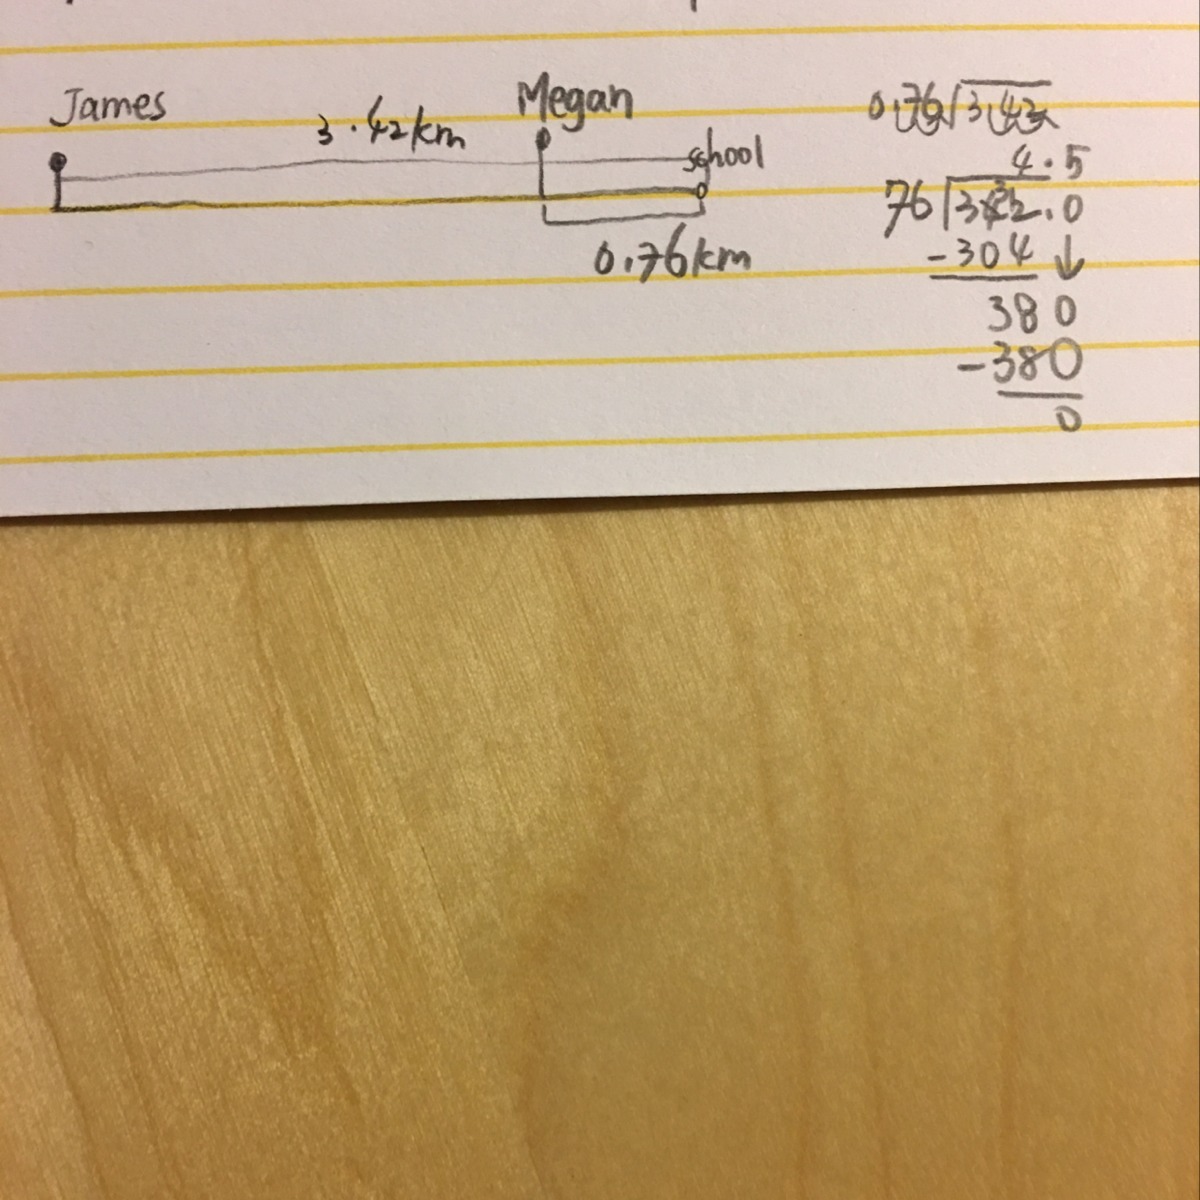 James
3.42km
Megan
school
0.76km
0.76⟌3.42
4.5
76⟌342.0
-304↓
380
-380
0